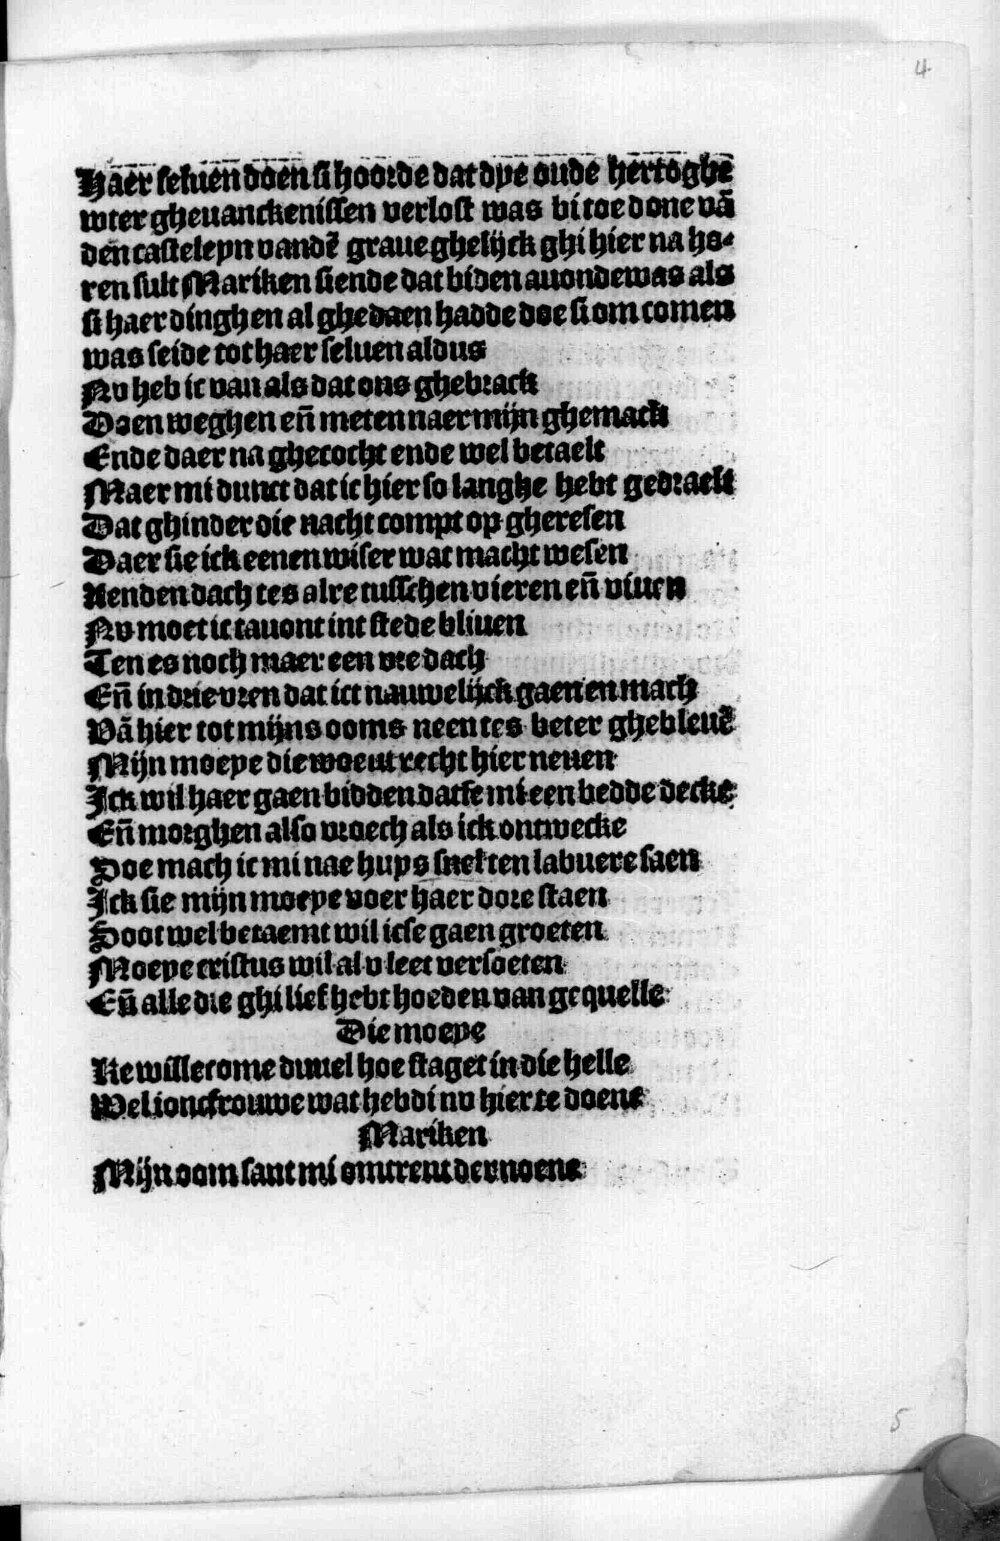 4
Haer seluen doen si hoorde dat dye oude hertoghe
wter gheuanckenissen verlost was bi toe done vā
den casteleyn vandē graue ghelijck ghi hier na ho-
ren sult Mariken siende dat biden auonde was als
si haer dinghen al ghedaen hadde doe si om comen
was seide tot haer seluen aldus
Nv heb ic van als dat ons ghebrack
Doen weghen eñ meten naer mijn ghemack
Ende daer na ghecocht ende wel betaelt
Maer mi dunct dat ic hier so langhe hebt gedraelt
Dat ghinder die nacht compt op gheresen
Daer sie ick eenen wiser wat macht wesen
Aenden dach tes alre tusschen vieren eñ viuen
Nv moet ic tauont int stede bliuen
Ten es noch maer een vre dach
Eñ in drie vren dat ict nauwelijck gaen en mach
Vā hier tot mijns ooms neen tes beter ghebleuē
Mijn moeye die woent recht hier neuen
Ick wil haer gaen bidden datse mi een bedde decke
Eñ morghen also vroech als ick ontwecke
Soe mach ic mi nae huys snel ten labuere saen
Ick sie mijn moeye voer haer dore staen
Soot wel betaemt wil icse gaen groeten
Moeye cristus wil al v leet versoeten
Eñ alle die ghi lief hebt hoeden van gequelle
Die moeye
Ke willecome duuel hoe staget in die helle
Wel ioncfrouwe wat hebdi nv hier te doene
Mariken
Mijn oom sant mi omtrent der noene
5